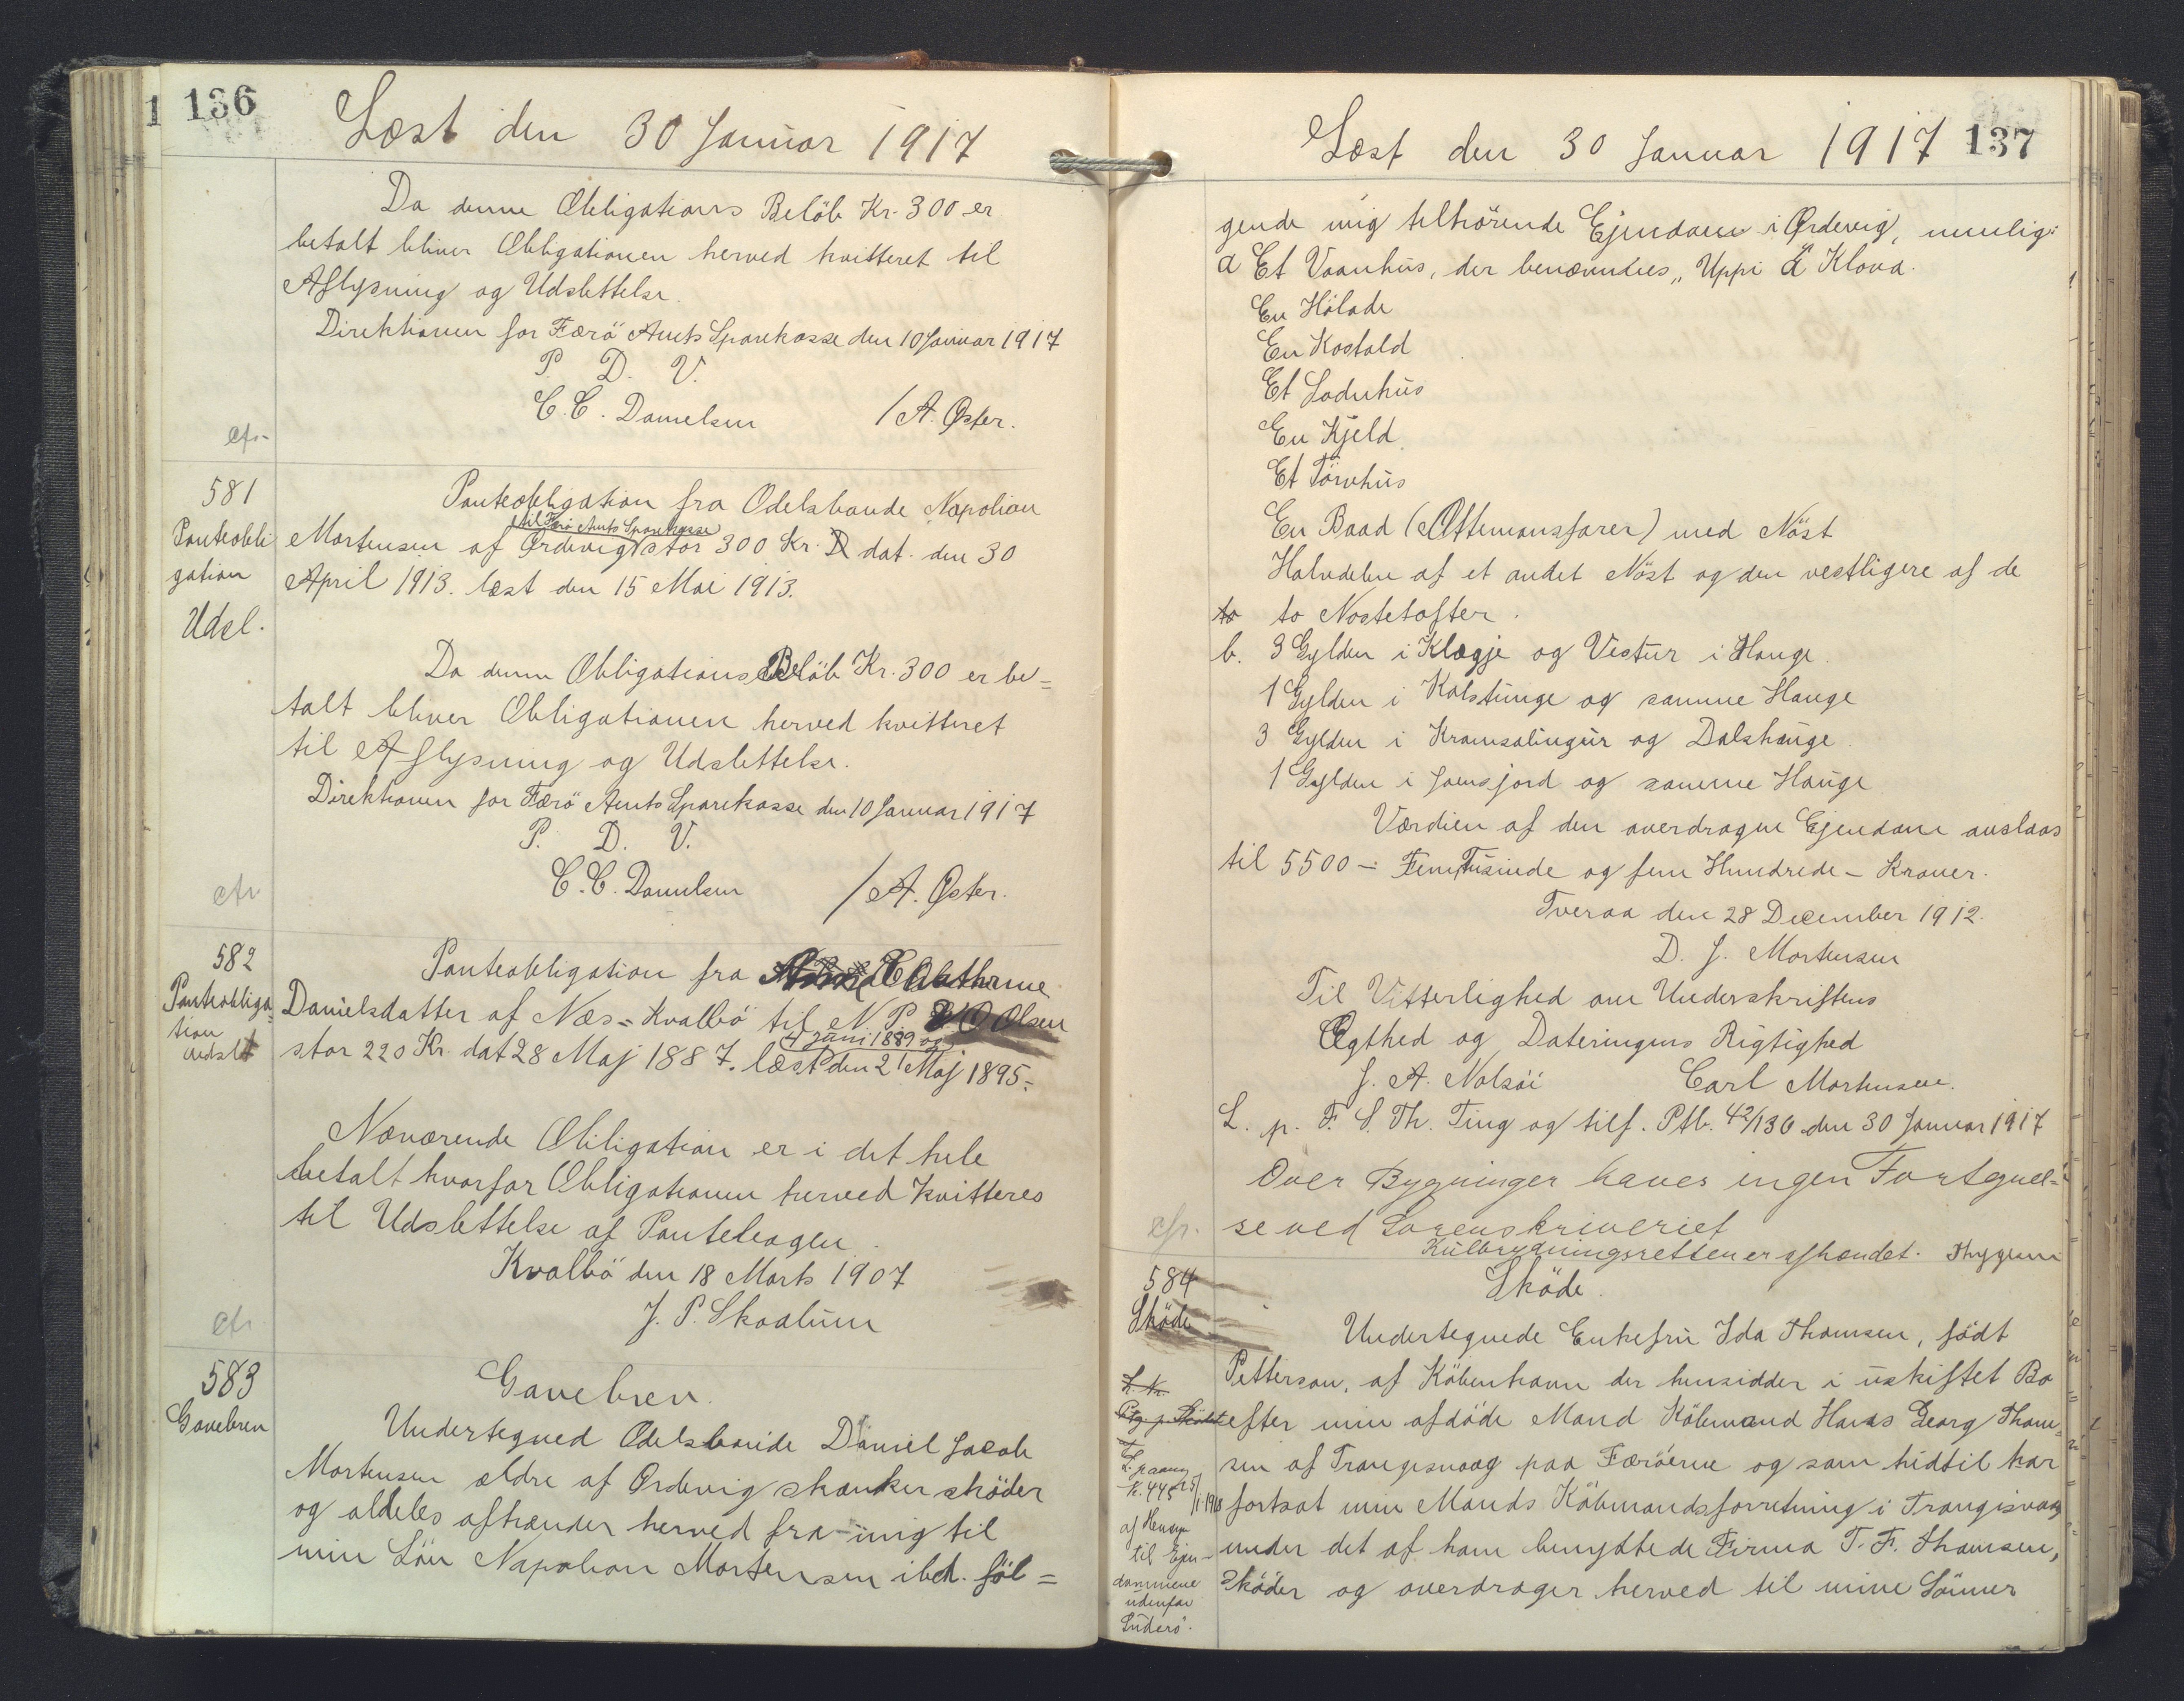 136
Læst den 30 Januar 1917
Da denne Obligations Beløb Kr. 300 er
betalt bliver Obligationen herved kvitteret til
Aflysning og Udslettelse.
Direktionen for Færö Amts Sparekasse den 10 Januar 1917
P. D. V.
C. C. Danielsen / A. Øster.
cfr.
581
Panteobligation
Udsl.
Panteobligation fra Odelsbonde Napolion
til Færö Amts Sparekasse
Mortensen af Ørdevig stor 300 Kr. dat. den 30
April 1913. læst den 15 Mai 1913.
Da denne Obligations Beløb Kr. 300 er be=
talt bliver Obligationen herved kvitteret
til Aflysning og Udslettelse.
Direktionen for Færö Amts Sparekasse den 10 Januar 1917
P. D. V.
C. C. Danielsen / A. Øster.
cfr
582
Panteobliga=
tion
Udslet
Panteobligation fra Cathrine
Danielsdatter af Næs=Kvalbö til N. P. O Olsen
4 Juni 1889 og
stor 220 Kr. dat 28 Maj 1887. læst den 21 Maj 1895.
Nærværende Obligation er i det hele
betalt hvorfor Obligationen herved kvitteres
til Udslettelse af Pantebogen.
Kvalbö den 18 Marts 1907
J. P. Skaalum
cfr
583
Gavebrev
Gavebrev.
Undertegned Odelsbonde Daniel Jacob
Mortensen ældre af Ördevig skænker sköder
og aldeles afhænder herved fra mig til
min Sön Napolion Mortensen ibd. föl=
137
Læst den 30 Januar 1917
gende mig tilhörende Ejendom i Ørdevig, nemlig:
a Et Vaanhus, der benævndes „Uppi á Klova.
En Hölade
En Kostald
Et Laduhus
En Kjeld
Et Törvhus
En Baad (Ottemansfarer) med Nöst
Halvdelen af et andet Nöst og den vestligere af de
to to Nostetofter.
b. 3 Gylden i Klægje og Vestur i Hauge.
1 Gylden i Kalstunge og samme Hauge
3 Gylden i Kramsalingur og Dalshauge.
1 Gylden i Joensjord og samme Hauge
Værdien af den overdragne Ejendom anslaas
til 5500 – Fem Tusinde og fem Hundrede – Kroner.
Tveraa den 28 December 1912.
D. J. Mortensen
Til Vitterlighed om Underskriftens
Ægthed og Dateringens Rigtighed
J. A. Nolsöi Carl Mortensen.
L. p. F. S. Th. Ting og tilf. Ptb. 42/136 den 30 Januar 1917
Over Bygninger haves ingen Fortegnel=
se ved Sorenskriveriet
Kulbrydningsretten er afhændet.
cfr.
584
Sköde
Sköde.
Undertegnede Enkefru Ida Thomsen, födt
Petterson, af Köbenhavn der hensidder i uskiftet Bo
efter min afdöde Mand Köbmand Hans Georg Thom=
sen af Trangisvaag paa Færöerne og som hidtil har
fortsat min Mands Köbmandsforretning i Trangisvaag
under det af ham benyttede Firma T. F. Thomsen,
Sköder og overdrager herved til mine Sönner
K. 445
af Hensyn
til Ejen-
dommene
udenfor
Suderö.